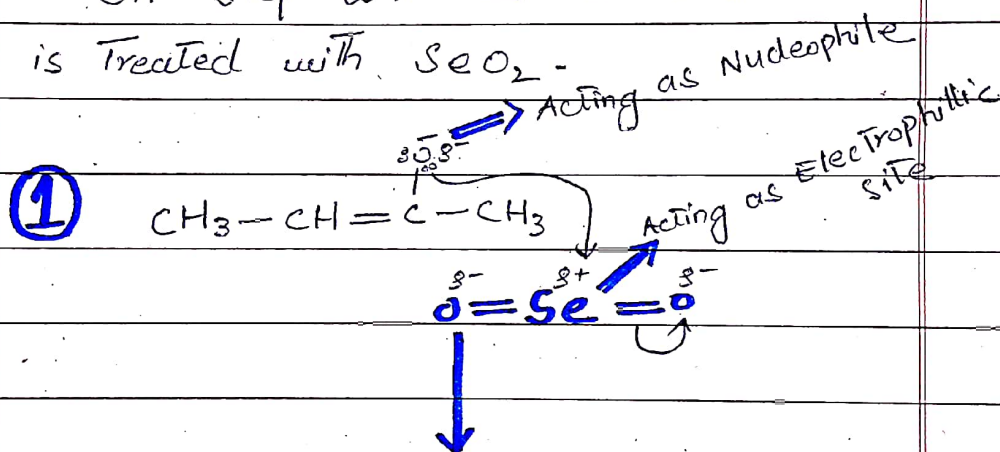 is Treated with SeO2 -
Acting as Nucleophile
:Ö: δ-
① CH3 - CH = C - CH3
Acting as Electrophillic
site
δ- δ+ δ-
O = Se = O